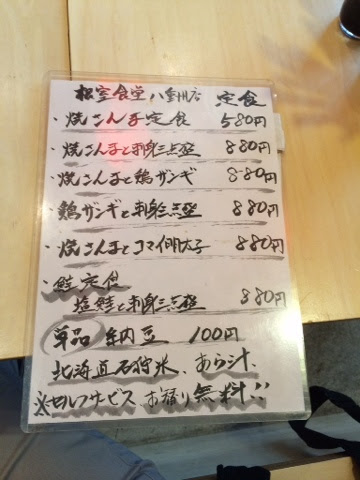 根室食堂 八重州店 定食
・焼さんま定食 580円
・焼さんまと刺身三点盛 880円
・焼さんまと鶏ザンギ 880円
・鶏ザンギと刺身三点盛 880円
・焼さんまとコマイ明太子 880円
・鮭定食
塩鮭と刺身三点盛 880円
単品 納豆 100円
北海道石狩米、あら汁、
※セルフサービス お替り無料!!